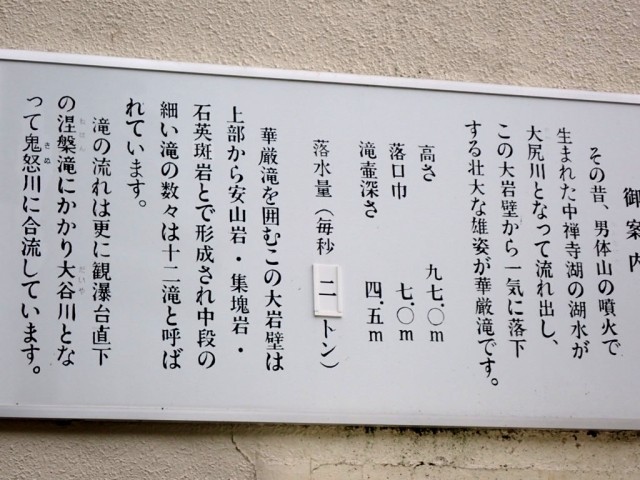 御案内
その昔、男体山の噴火で
生まれた中禅寺湖の湖水が
大尻川となって流れ出し、
この大岩壁から一気に落下
する壮大な雄姿が華厳滝です。
高さ 九七.〇m
落口巾 七.〇m
滝壷深さ 四.五m
落水量(毎秒 二 トン)
華厳滝を囲むこの大岩壁は
上部から安山岩・集塊岩・
石英斑岩とで形成され中段の
細い滝の数々は十二滝と呼ば
れています。
滝の流れは更に観瀑台直下
の涅槃滝にかかり大谷川とな
って鬼怒川に合流しています。